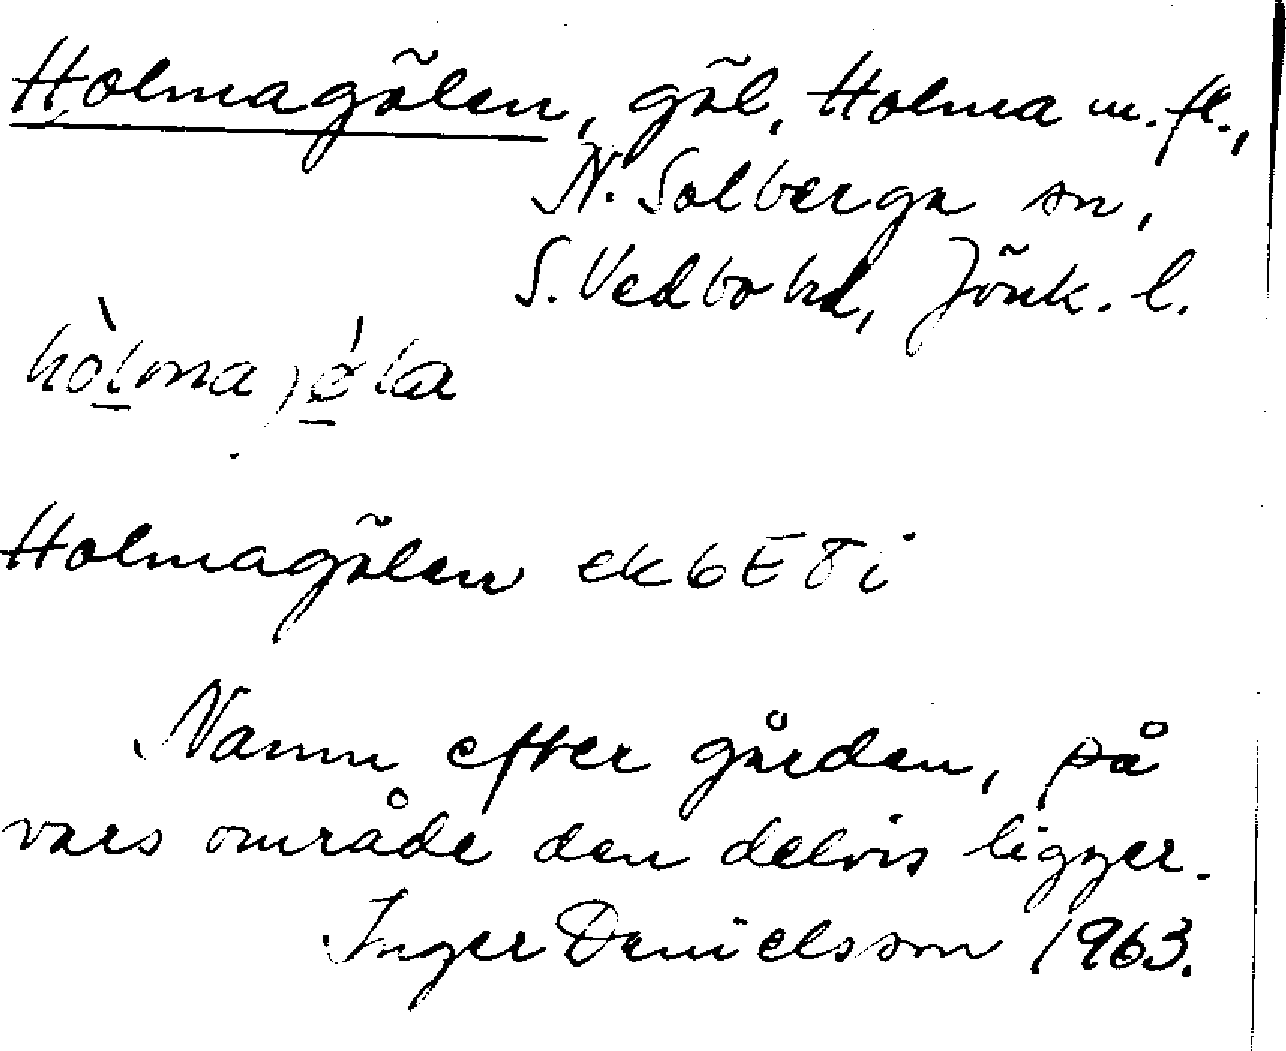 Holmagölen, göl, Holma m.fl.,
N. Solberga sn,
S. Vedbo hd, Jönk. l.
Holmagölen ek 6E 8i
Namn efter gården, på
vars område den delvis ligger.
Inger Danielsson 1963.